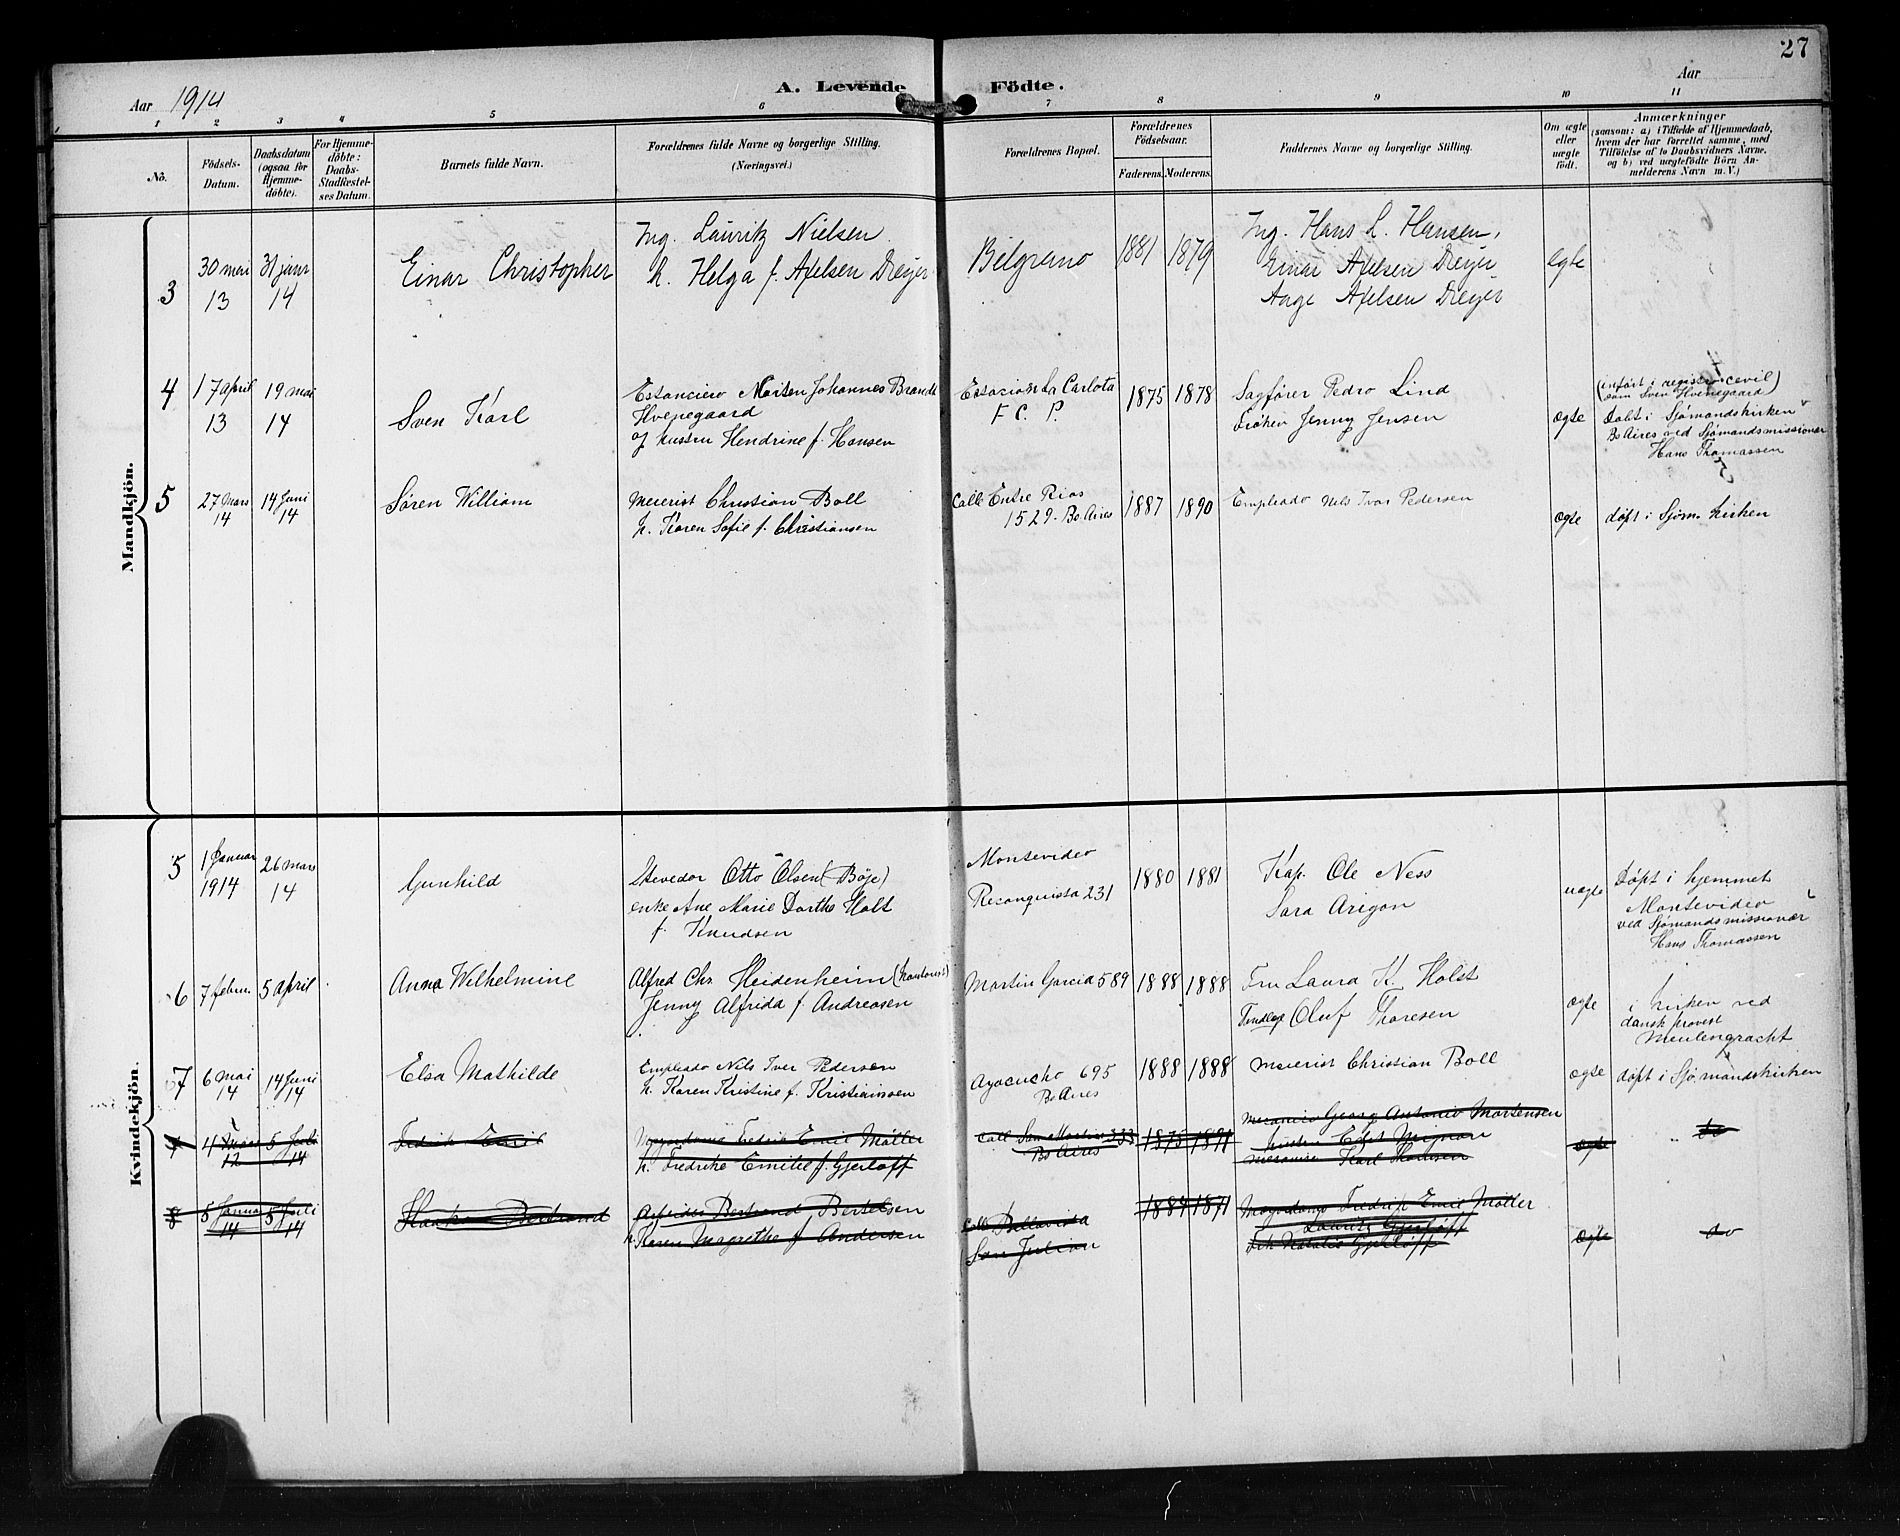 27
Aar 1914
A. Levende Födte.
Aar
1 2 3 4 5 6 7 8 9 10 11
No.
Födsels-Datum.
Daabsdatum (ogsaa for Hjemme-döbte).
For Hjemme-döbte: Daabs-Stadfæstel-ses Datum.
Barnets fulde Navn.
Forældrenes fulde Navne og borgerlige Stilling.
(Næringsvei.)
Forældrenes Bopæl.
Forældrenes Födselsaar.
Faderens. Moderens.
Faddernes Navne og borgerlige Stilling.
Om ægte eller uægte födt.
Anmærkninger
(saasom: a) i Tilfælde af Hjemmedaab,
hvem der har forrettet samme, med
Tilföielse af to Daabsvidners Navne,
og b) ved uægtefödte Börn An-
melderens Navn m.V.)
Mandkjön.
3
30 mai
13
31 janr
14
Einar Christopher
Ing. Lauritz Nielsen
h. Helga f. Axelsen Dreyer
Belgrano
1881 1879
Ing. Hans L. Hansen,
Einar Axelsen Dreyer
Aage Axelsen Dreyer
egte
4
17 april
13
19 mai
14
Sven Karl
Estanciero Morten Johannes Brandt
Hvenegaard
og hustru Hendrine f. Hansen
Estacion La Carlota
F. C. P.
1875 1878
Sagfører Pedro Lind
Frøken Jenny Jensen
ægte
(inført i registro civil
som Sven Hvenegaard)
Døbt i Sjømandskirken
Bs Aires ved Sjømandsmissionær
Hans Thomassen
5
27 Mars
14
14 Juni
14
Søren William
Meierist Christian Boll
h. Karen Sofie f. Christiansen
Calle Entre Rios
1529. Bs Aires
1887 1890
Empleado Nils Iver Pedersen
ægte
døpt i Sjøm. kirken
Kvindekjön.
5
1 Januar
1914
26 mars
14
Gunhild
Stevedor Otto Olsen (Böje)
enke Ane Marie Dorthe Holt
f. Knudsen
Montevideo
Reconquista 231
1880 1881
Kap. Ole Ness
Sara Arigon
uægte
Døpt i hjemmet
Montevideo
ved Sjømandsmissionær
Hans Thomassen
6
7 febru.
5 april
Anna Wilhelmine
Alfred Chr Heidenheim (kontorist)
Jenny Alfrida f. Andreasen
Martin Garcia 589
1888 1888
Fru Laura K. Holst
Oluf Thoresen
ægte
i kirken ved
dansk provst
Meulengracht
7
6 mai
14
14 Juni
14
Elsa Mathilde
Empleado Nils Iver Pedersen
h. Karen Kristine f. Kristianssen
Ayacucho 695
Bs Aires
1888 1888
Meierist Christian Boll
ægte
døpt i Sjømandskirken
7
4
12
5 Juli
14
Fredrik Emil
Mayordomo Fredrik Emil Møller
h. Fredrike Emilie f. Gjerløff
Calle San Martin 333
Bs Aires
1875 1891
mecanico Georg Antonio Mortensen
Karl Thomsen
ægte
do
8
5 Januar
14
5 Juli
14
Bertrand
Bertrand Bertelsen
h. Karen Magrethe f. Andersen
Calle Bellavista
San Julian
1884 1871
Mayordomo Fredrik Emil Møller
Lauritz Gjerløff
Frk Natalie Gjerløff
ægte
do